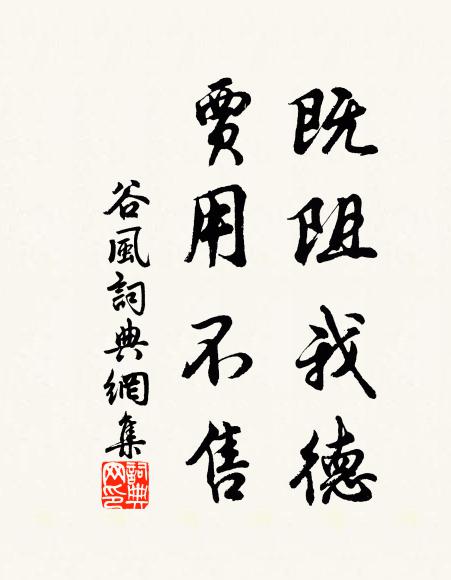 既阻我德
賈用不售
谷風詞典網集
詞典网印